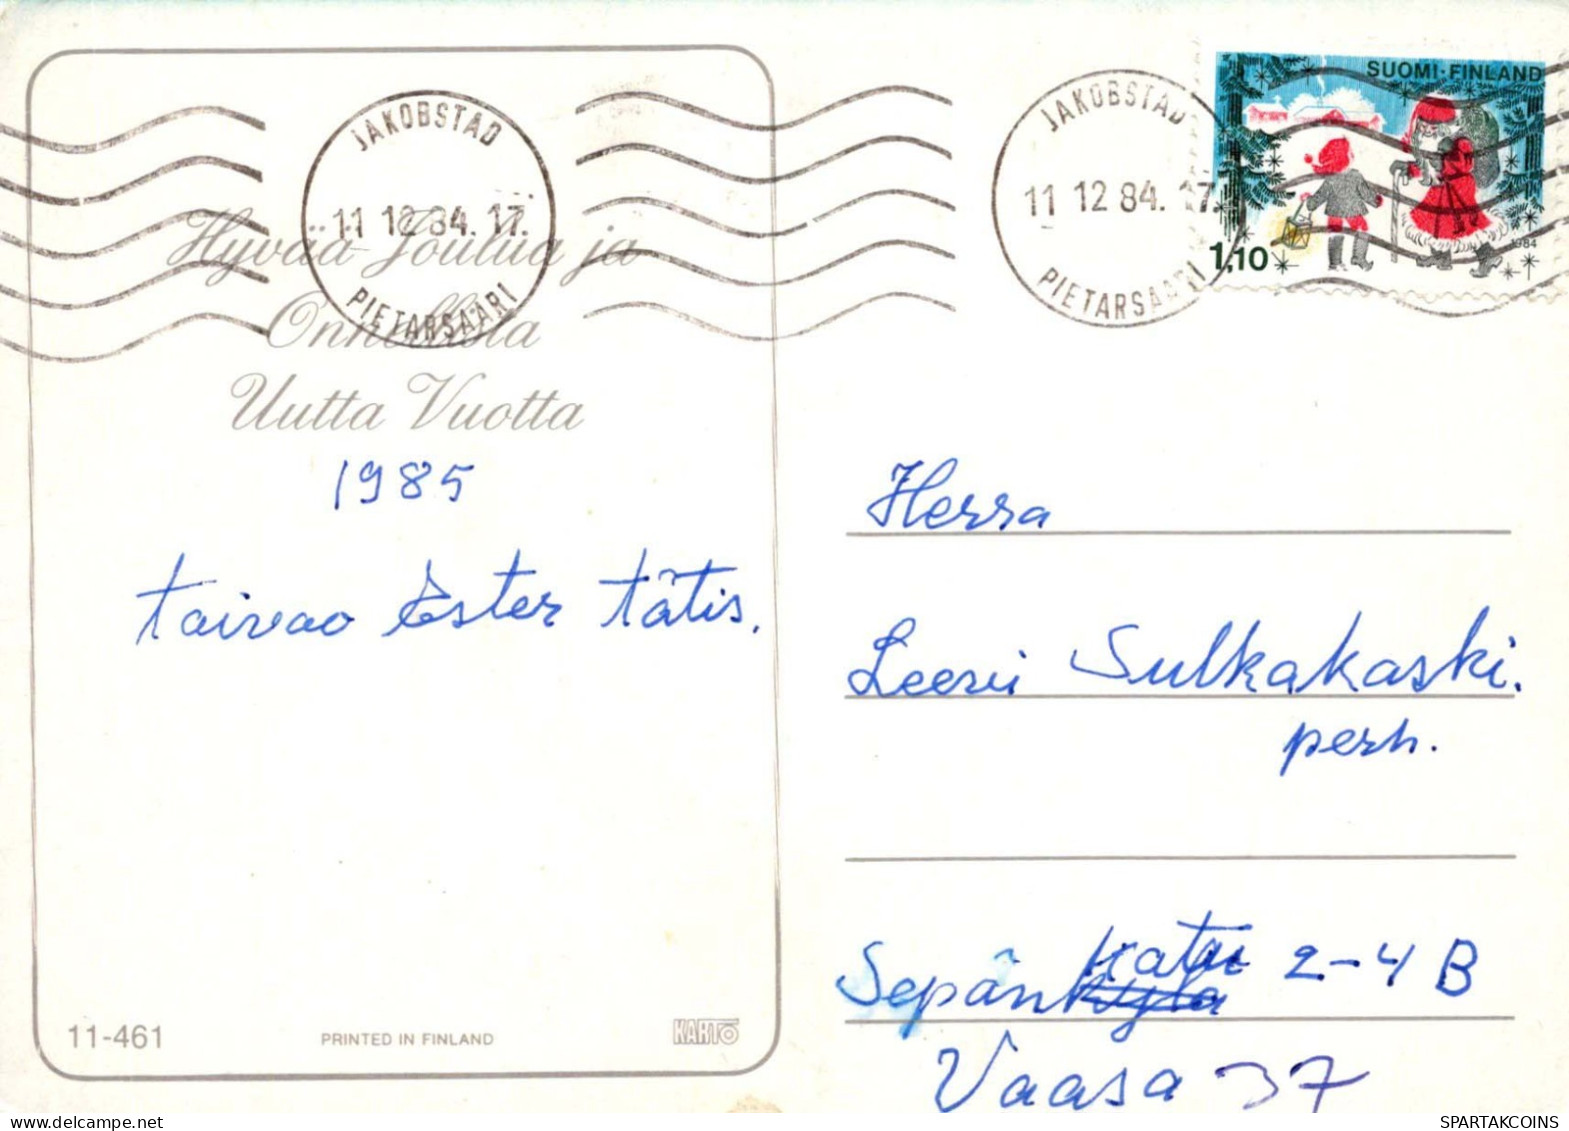 JAKOBSTAD
11 12 84. 17.
PIETARSAARI
Hyvää Joulua ja
Onnellista
Uutta Vuotta
1985
Ester tätis.
11-461
PRINTED IN FINLAND
KARTO
JAKOBSTAD
11 12 84. 17.
PIETARSAARI
SUOMI·FINLAND
1,10
1984
Herra
Sulkakaski.
perh.
katu 2-4 B
Sepän
Vaasa 37
SPARTAKCOINS